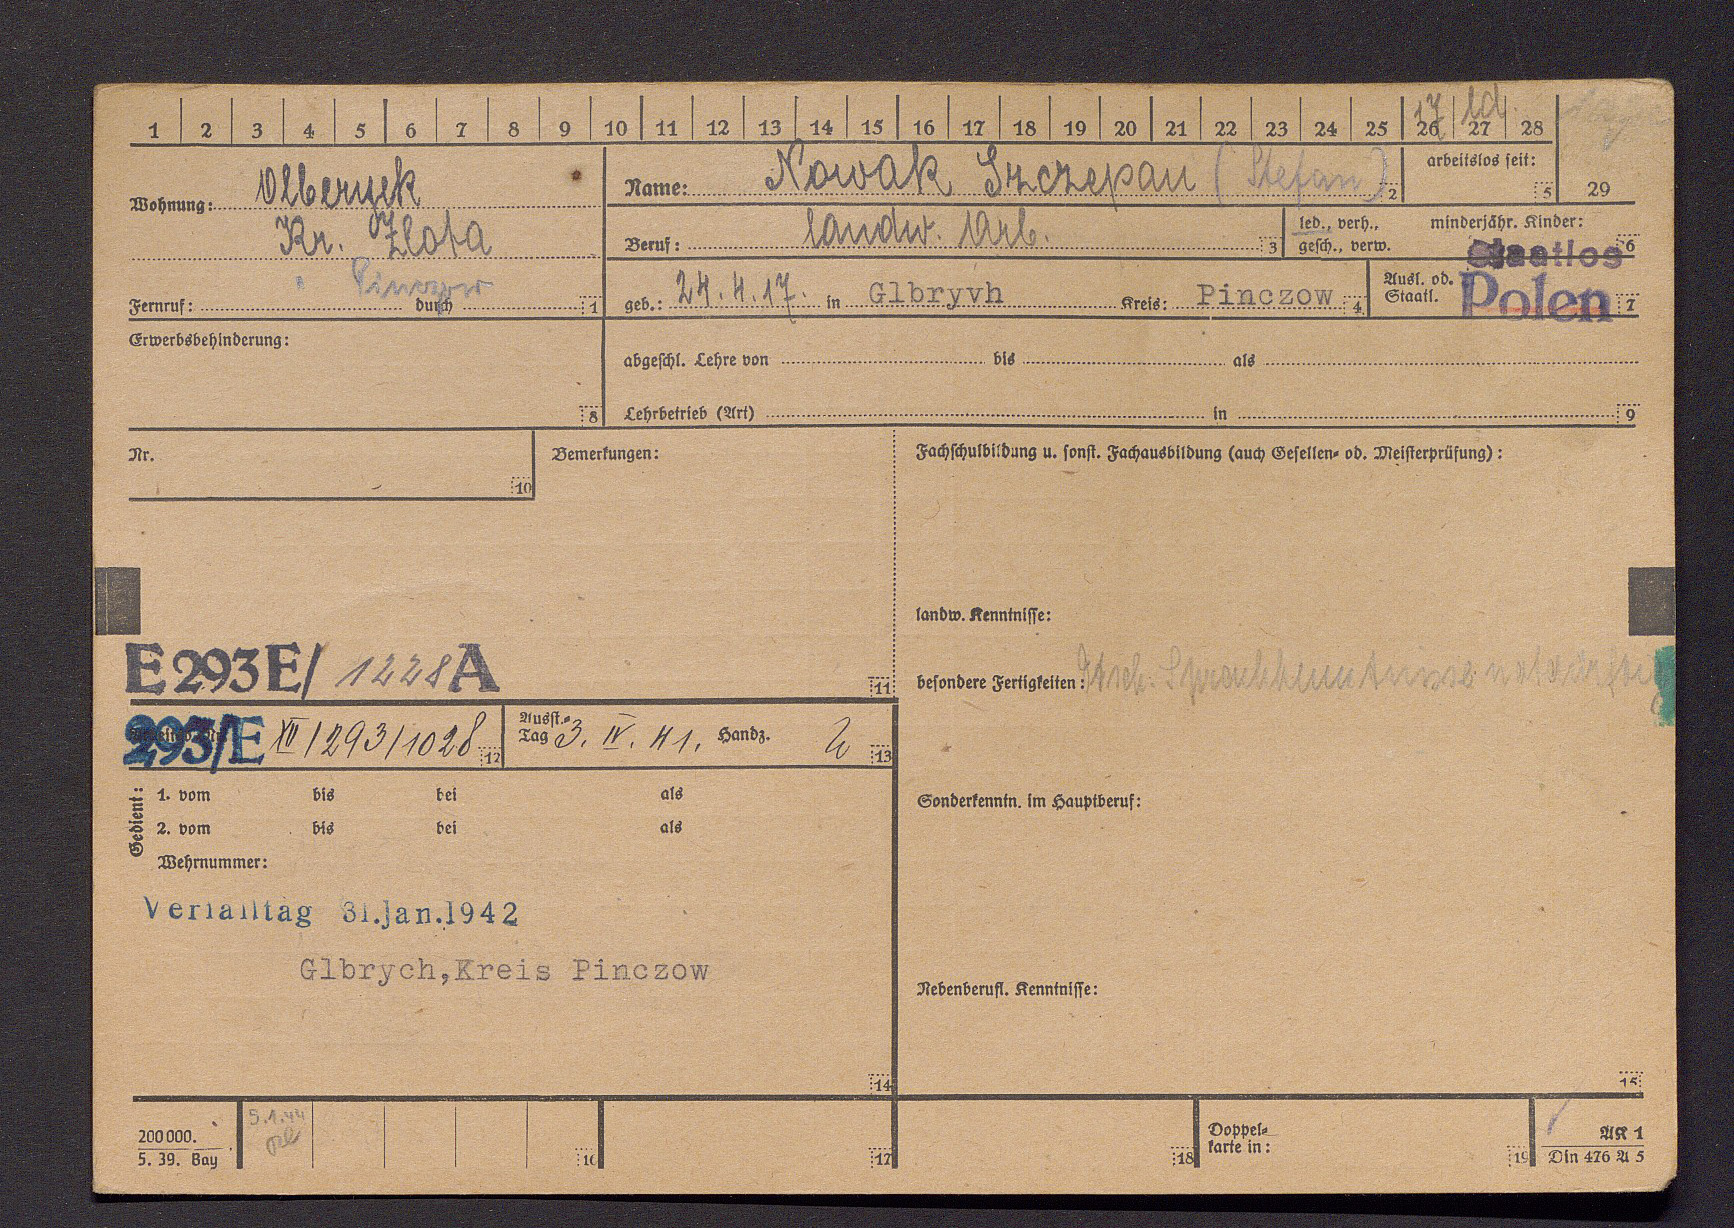 1 2 3 4 5 6 7 8 9 10 11 12 13 14 15 16 17 18 19 20 21 22 23 24 25 26 27 28
17 ld.
Wohnung: Olberych
Kr. Zlota
Pinczow
Fernruf: durch 1
Name: Nowak Szczepan (Stefan) 2
arbeitslos seit: 5
29
Beruf: landw. Arb. 3
led., verh., gesch., verw.
minderjähr. Kinder: 6
geb.: 24.4.17. in Glbryvh Kreis: Pinczow 4
Ausl. od. Staatl. Staatlos Polen 7
Erwerbsbehinderung:
8
abgeschl. Lehre von bis als
Lehrbetrieb (Art) in 9
Nr.
10
Bemerkungen:
E 293 E/ 1228 A
11
293/E XII/293/1028 12
Ausst.-Tag 3. IV. 41. Handz. 13
Gedient:
1. vom bis bei als
2. vom bis bei als
Wehrnummer:
Verfalltag 31.Jan.1942
Glbrych,Kreis Pinczow
14
Fachschulbildung u. sonst. Fachausbildung (auch Gesellen- od. Meisterprüfung):
landw. Kenntnisse:
besondere Fertigkeiten: Sprachkenntnisse
Sonderkenntn. im Hauptberuf:
Nebenberufl. Kenntnisse:
15
200000.
5. 39. Bay
5.1.44
16
17
18
Doppelkarte in:
19
AK 1
Din 476 A 5